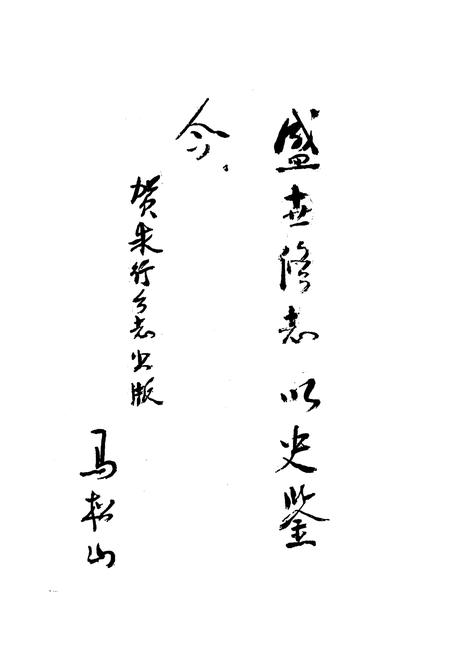 盛世修志以史鉴
今。
贺朱行乡志出版
马松山